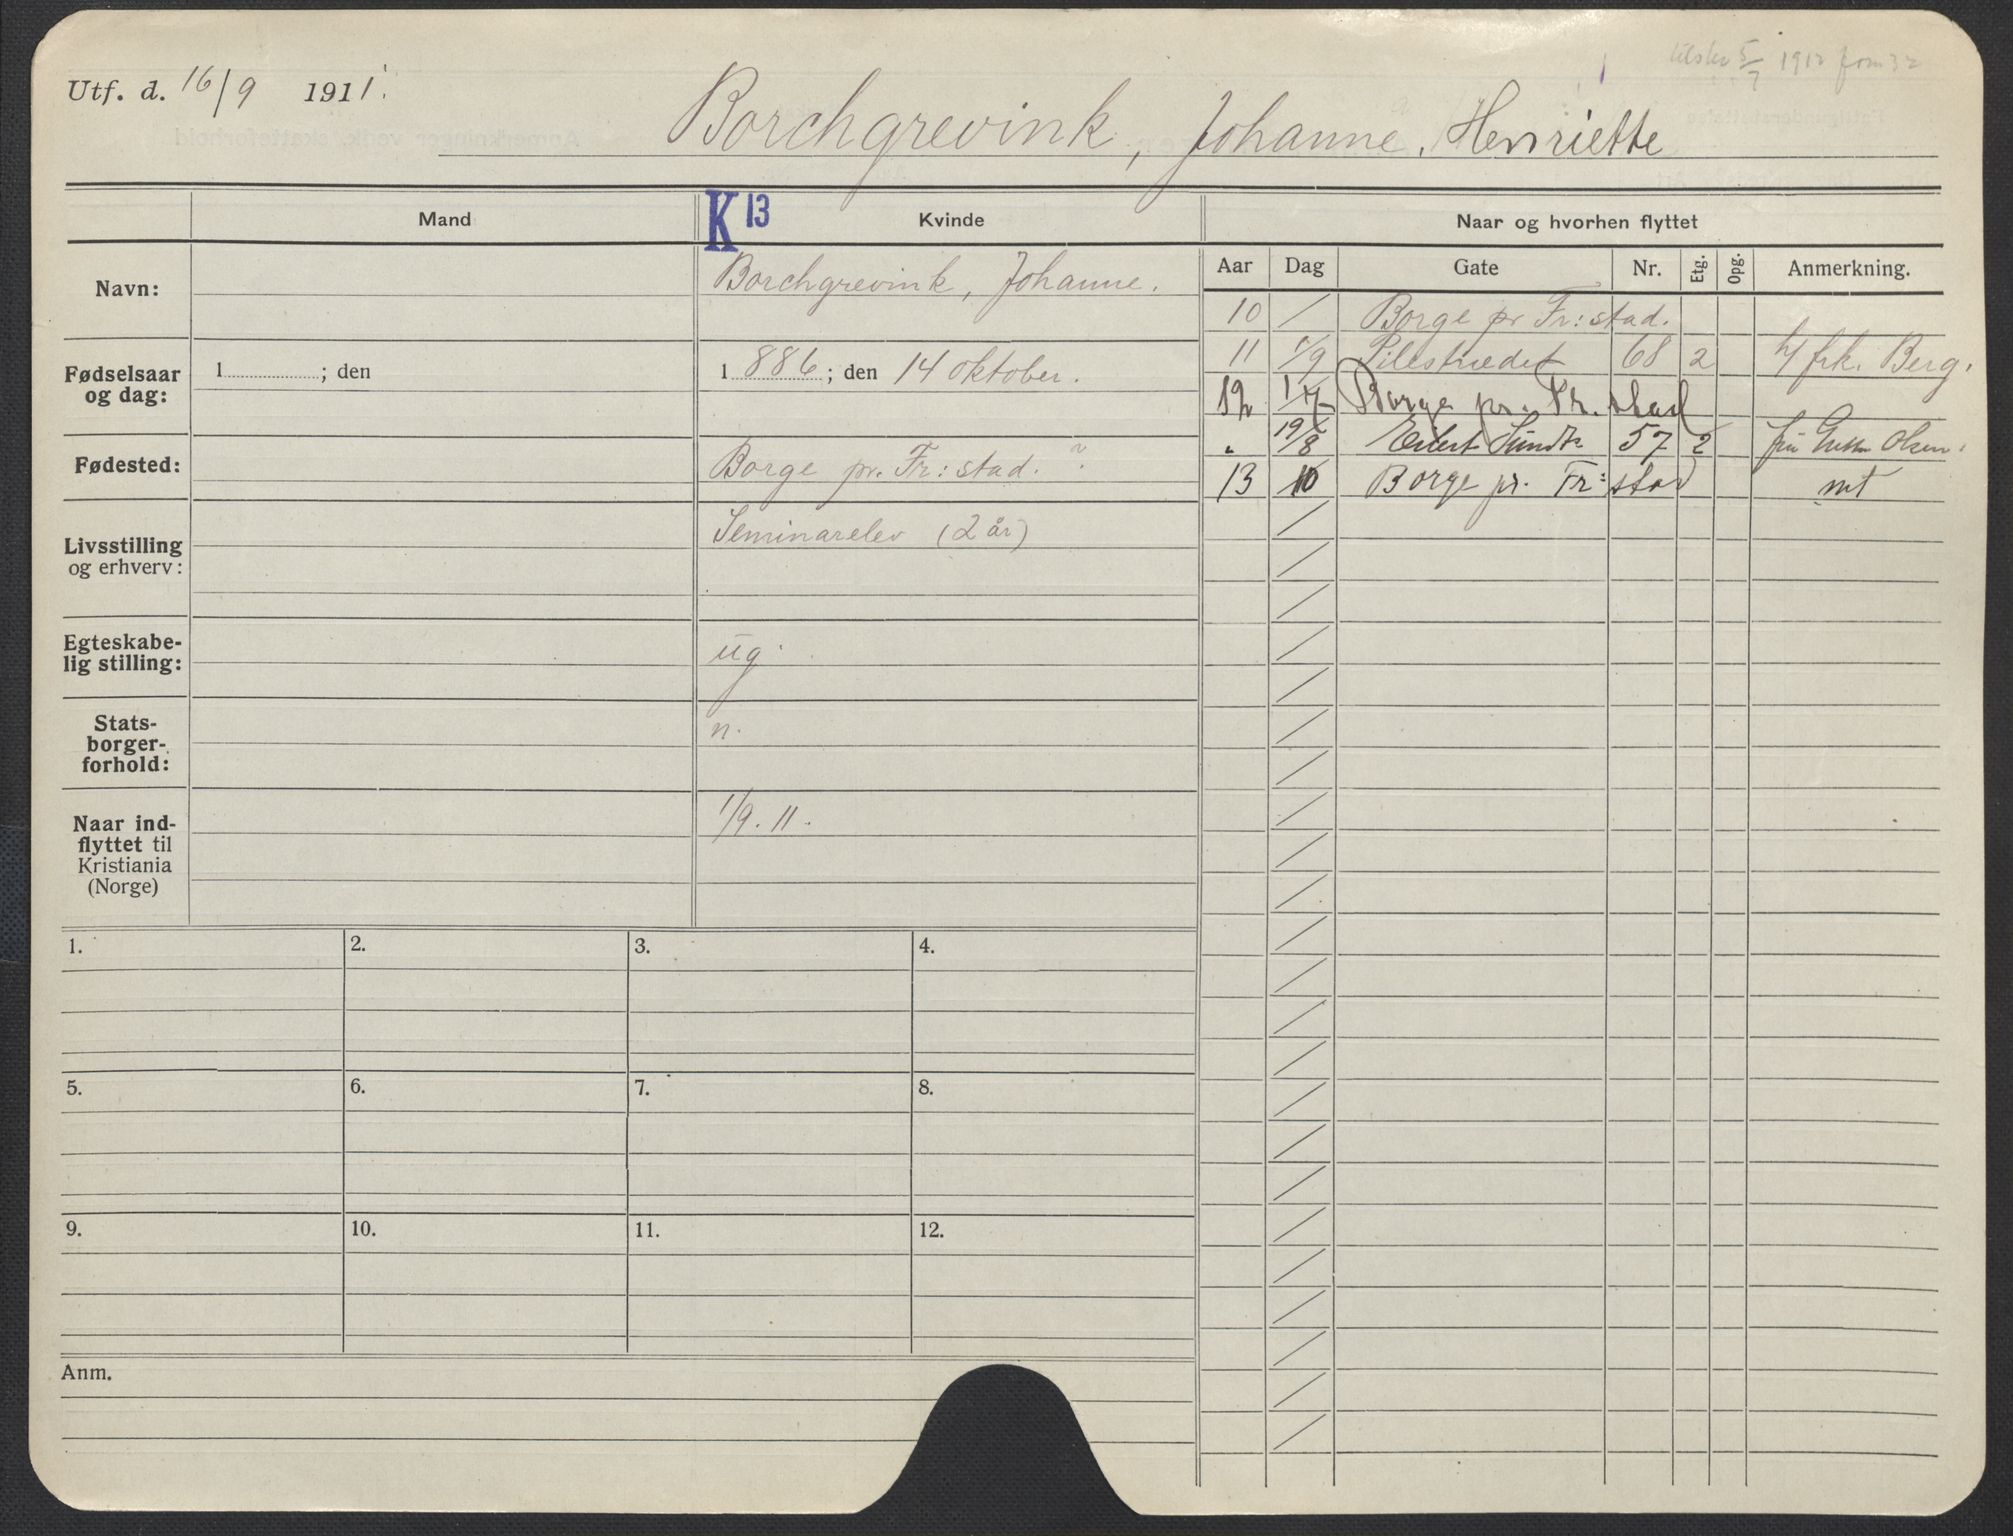 Utf. d. 16/9 1911.
Borchgrevink, Johanne, Henriette
Mand
K 13
Kvinde
Naar og hvorhen flyttet
Navn:
Borchgrevink, Johanne.
Fødselsaar og dag:
1 ; den
1 886 ; den 14 oktober.
Fødested:
Borge pr. Fr:stad. ?
Livsstilling og erhverv:
Seminarelev (2 år)
Egteskabe-
lig stilling:
ug.
Stats-
borger-
forhold:
n.
Naar ind-
flyttet til
Kristiania
(Norge)
1/9. 11.
Aar Dag Gate Nr. Etg. Opg. Anmerkning.
10 / Borge pr Fr:stad.
11 1/9 Pilestrædet 68 2 h/ frk. Berg.
12 1/7 Borge pr. Fr.stad
" 19/8 Eilert Sundts 57 2 fru Olsen.
13 10 Borge pr. Fr:stad mt
1. 2. 3. 4.
5. 6. 7. 8.
9. 10. 11. 12.
Anm.